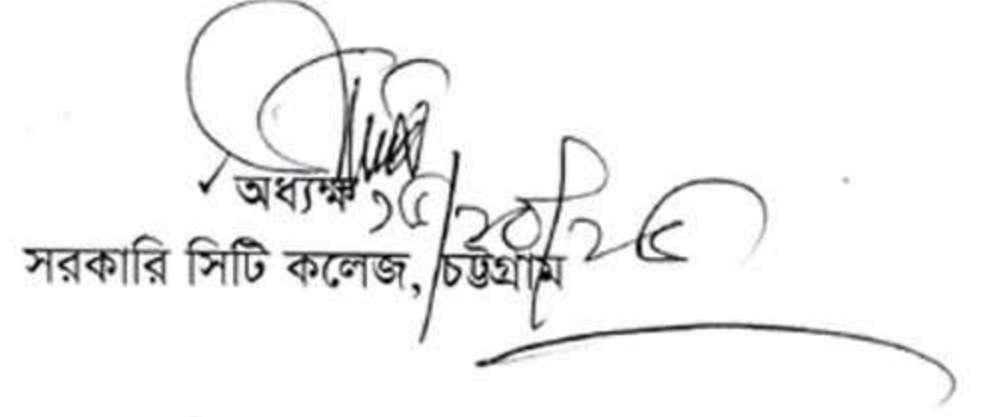 অধ্যক্ষ
১৫/১০/২৫
সরকারি সিটি কলেজ, চট্টগ্রাম